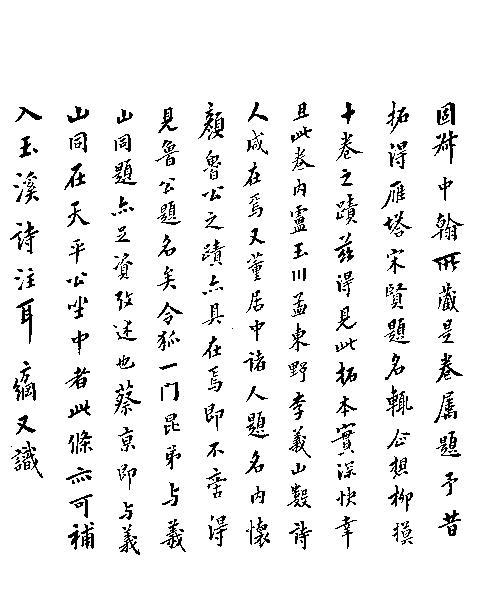 固叔中翰所藏是卷屬題予昔
拓得雁塔宋賢題名輒企想柳璞
十卷之蹟茲得見此拓本實深快幸
且此卷內盧玉川孟東野李義山數詩
人咸在焉又董居中諸人題名內懷
顏魯公之蹟亦具在焉即不啻得
見魯公題名矣令狐一门昆弟与義
山同題亦足資攷述也蔡京即与義
山同在天平公坐中者此條亦可補
入玉溪詩注耳 綱又識